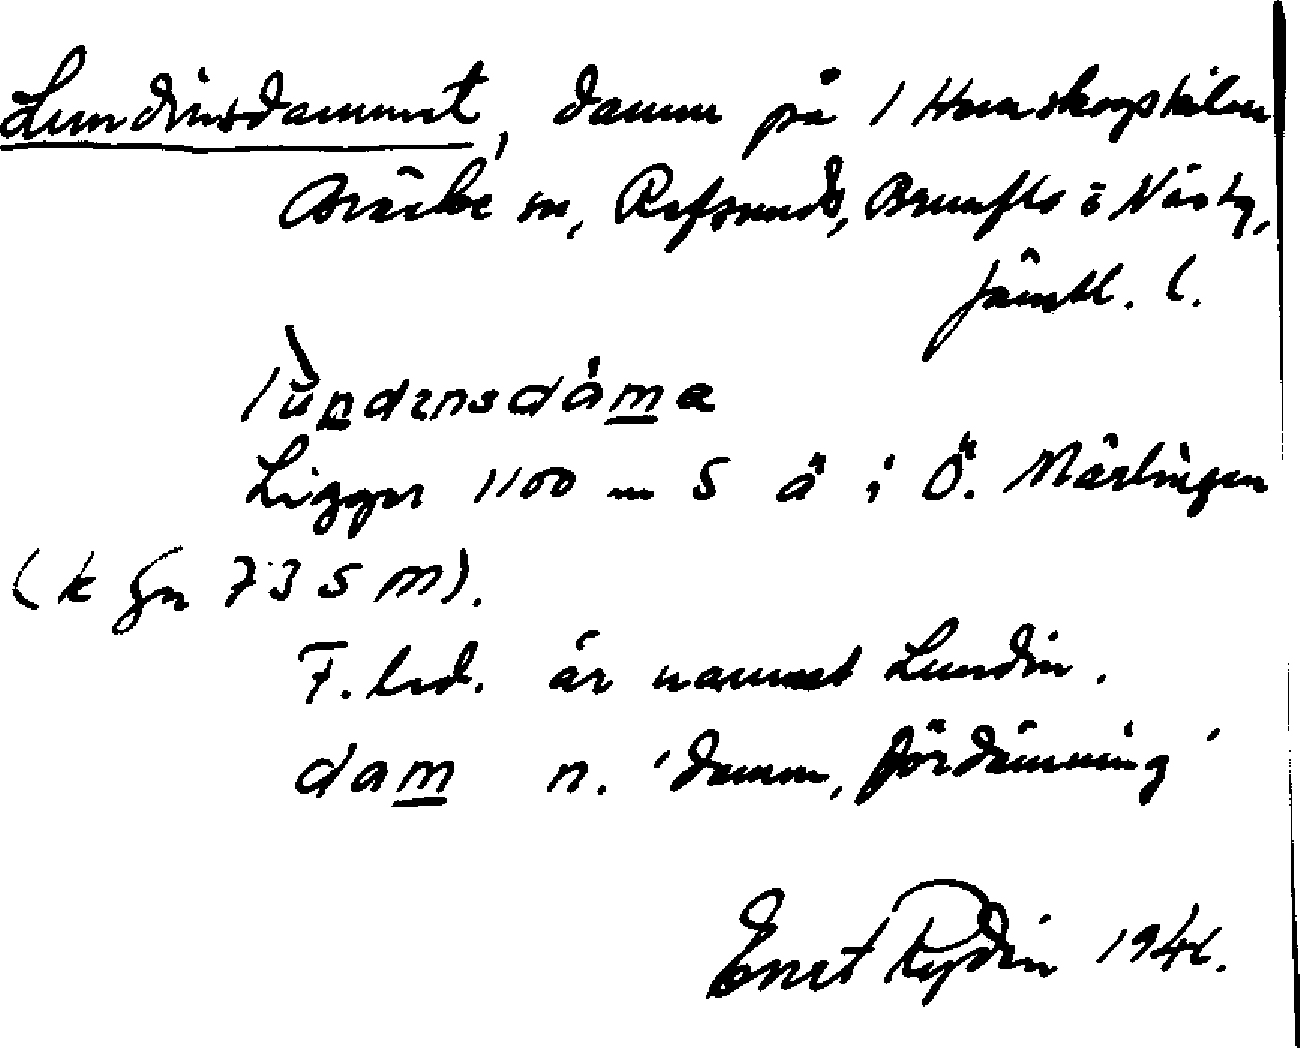 Lundinsdammet, damm på 1 Hemskogskilen
Bräcke sn, Refsunds, Brunflo o Näs tg,
Jämtl. l.
lùndensdáma
Ligger 1100 m S ä i Ö. Märlingen
(k fn 735 m).
F. led. är namnet Lundin.
dam n. 'damm, fördämning'
Ernst Rydin 1941.